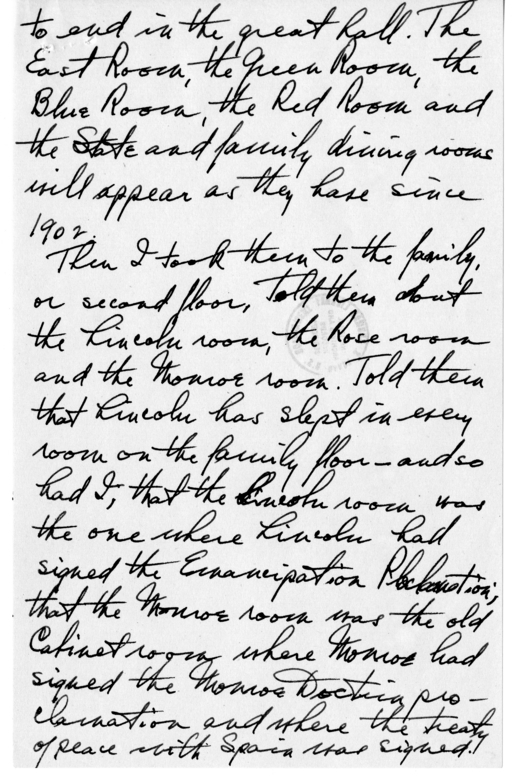 to end in the great hall. The
East Room, the Green Room, the
Blue Room, the Red Room and
the State and family dining rooms
will appear as they have since
1902.
Then I took them to the family,
or second floor, Told them about
the Lincoln room, the Rose room
and the Monroe room. Told them
that Lincoln has slept in every
room on the family floor—and so
had I; that the Lincoln room was
the one where Lincoln had
signed the Emancipation Proclamation;
that the Monroe room was the old
Cabinet room where Monroe had
signed the Monroe Doctrin pro-
clamation and where the treaty
of peace with Spain was signed!